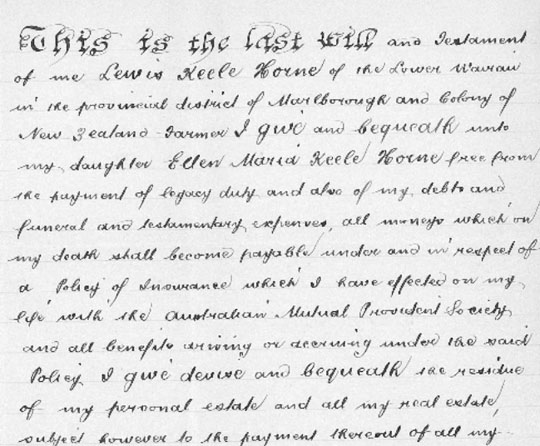 This is the last Will and Testament
of me Lewis Keele Horne of the Lower Wairau
in the provincial district of Marlborough and Colony of
New Zealand Farmer I give and bequeath unto
my daughter Ellen Maria Keele Horne free from
the payment of legacy duty and also of my debts and
funeral and testamentary expenses, all moneys which on
my death shall become payable under and in respect of
a Policy of Insurance which I have effected on my
life with the Australian Mutual Provident Society
and all benefits arising or accruing under the said
Policy I give devise and bequeath the residue
of my personal estate and all my real estate,
subject however to the payment thereout of all my